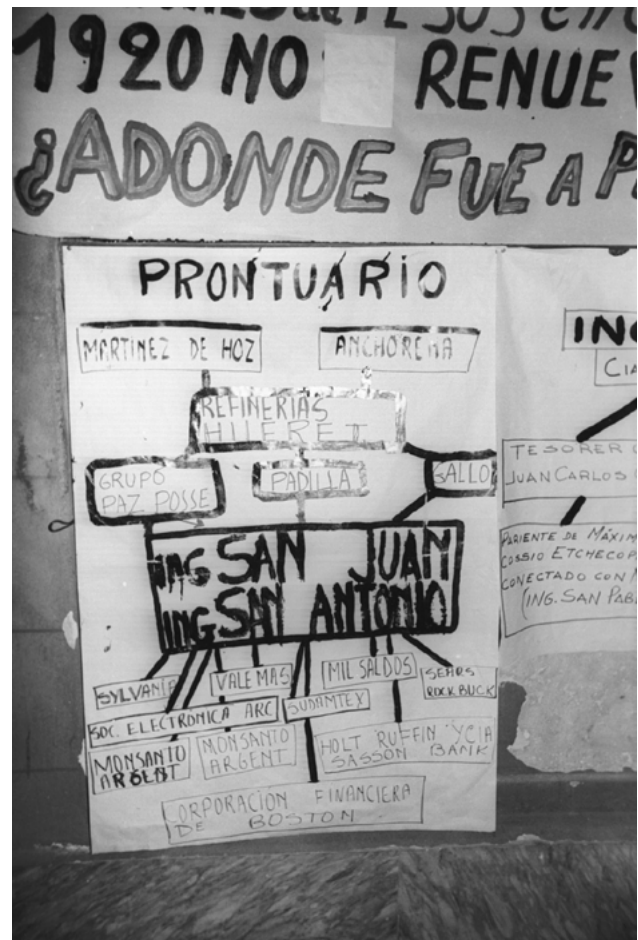 1920 NO RENUE
¿ADONDE FUE A P
PRONTUARIO
MARTINEZ DE HOZ
ANCHORENA
REFINERIAS
HILERET
GRUPO
PAZ POSSE
PADILLA
GALLO
ING SAN JUAN
ING SAN ANTONIO
SYLVANIA
VALEMAS
MIL SALDOS
SEARS
ROCK BUCK
SOC. ELECTRONICA ARC
SUDAMTEX
MONSANTO
ARGENT
MONSANTO
ARGENT
HOLT RUFFIN Y CIA
SASSON BANK
CORPORACION FINANCIERA
DE BOSTON
ING
CIA
TESORERO
JUAN CARLOS
PARIENTE DE MÁXIM
COSSIO ETCHECOP
CONECTADO CON
(ING. SAN PAB